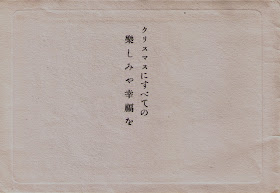 クリスマスにすべての
樂しみや幸福を